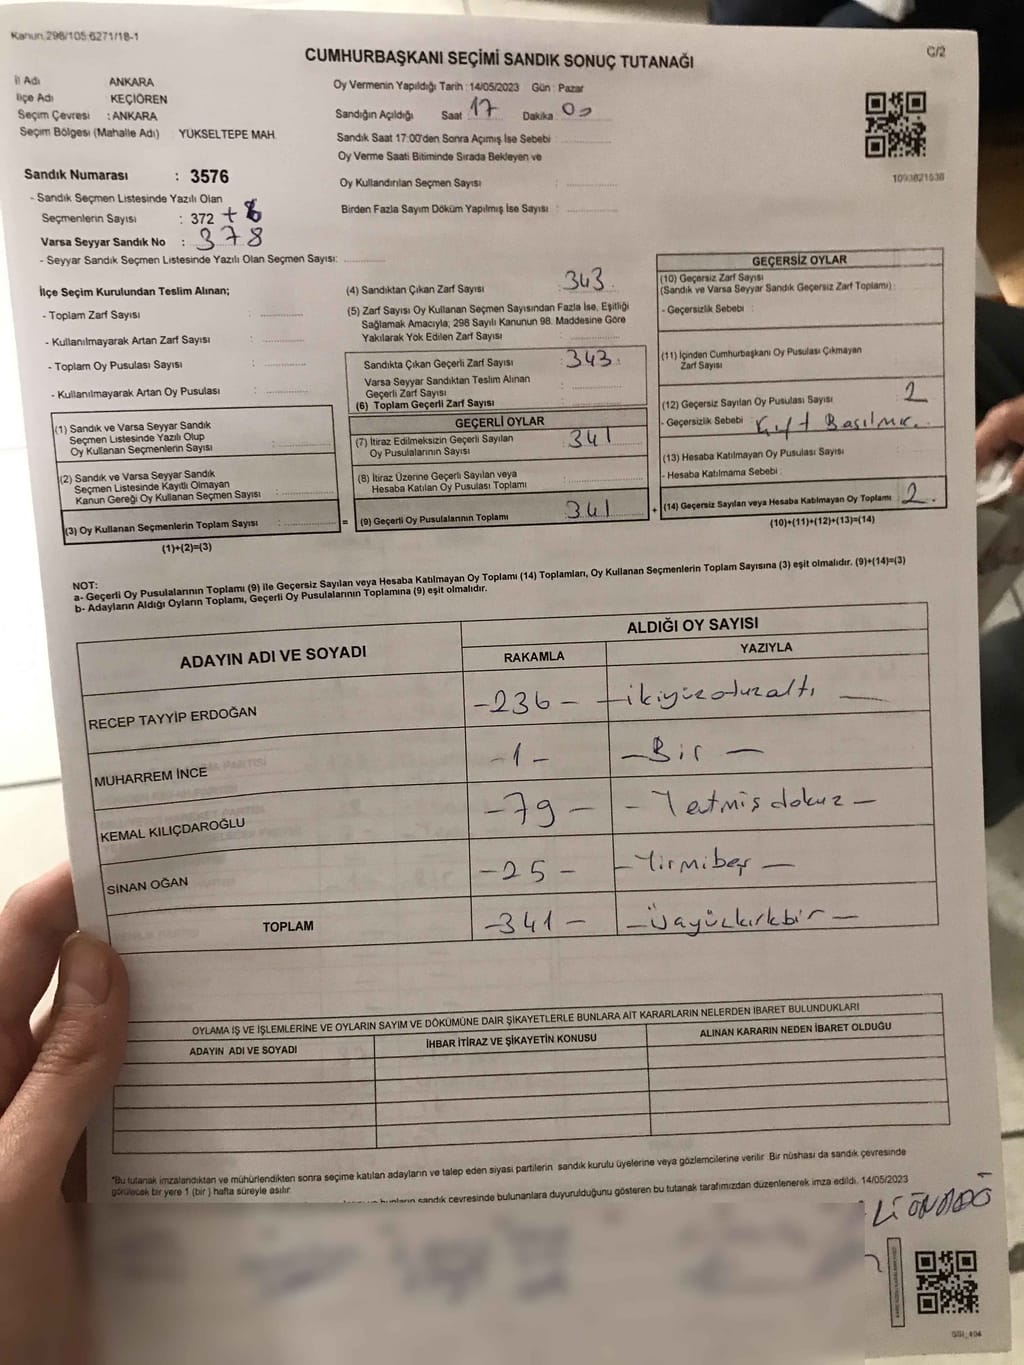 Kanun:298/105:6271/18-1
C/2
CUMHURBAŞKANI SEÇİMİ SANDIK SONUÇ TUTANAĞI
İl Adı ANKARA
İlçe Adı : KEÇİÖREN
Seçim Çevresi : ANKARA
Seçim Bölgesi (Mahalle Adı) YÜKSELTEPE MAH.
Sandık Numarası : 3576
- Sandık Seçmen Listesinde Yazılı Olan
Seçmenlerin Sayısı : 372 + 6
Varsa Seyyar Sandık No : 378
- Seyyar Sandık Seçmen Listesinde Yazılı Olan Seçmen Sayısı:
Oy Vermenin Yapıldığı Tarih : 14/05/2023 Gün : Pazar
Sandığın Açıldığı Saat 17 Dakika 00
Sandık Saat 17:00'den Sonra Açımış İse Sebebi :
Oy Verme Saati Bitiminde Sırada Bekleyen ve
Oy Kullandırılan Seçmen Sayısı :
Birden Fazla Sayım Döküm Yapılmış İse Sayısı :
1093821538
İlçe Seçim Kurulundan Teslim Alınan;
- Toplam Zarf Sayısı :
- Kullanılmayarak Artan Zarf Sayısı :
- Toplam Oy Pusulası Sayısı :
- Kullanılmayarak Artan Oy Pusulası :
(1) Sandık ve Varsa Seyyar Sandık
Seçmen Listesinde Yazılı Olup
Oy Kullanan Seçmenlerin Sayısı :
(2) Sandık ve Varsa Seyyar Sandık
Seçmen Listesinde Kayıtlı Olmayan
Kanun Gereği Oy Kullanan Seçmen Sayısı :
(3) Oy Kullanan Seçmenlerin Toplam Sayısı : =
(1)+(2)=(3)
(4) Sandıktan Çıkan Zarf Sayısı : 343
(5) Zarf Sayısı Oy Kullanan Seçmen Sayısından Fazla İse, Eşitliği
Sağlamak Amacıyla; 298 Sayılı Kanunun 98. Maddesine Göre
Yakılarak Yok Edilen Zarf Sayısı :
Sandıkta Çıkan Geçerli Zarf Sayısı : 343
Varsa Seyyar Sandıktan Teslim Alınan
Geçerli Zarf Sayısı :
(6) Toplam Geçerli Zarf Sayısı :
GEÇERLİ OYLAR
(7) İtiraz Edilmeksizin Geçerli Sayılan
Oy Pusulalarının Sayısı : 341
(8) İtiraz Üzerine Geçerli Sayılan veya
Hesaba Katılan Oy Pusulası Toplamı :
(9) Geçerli Oy Pusulalarının Toplamı : 341 +
GEÇERSİZ OYLAR
(10) Geçersiz Zarf Sayısı
(Sandık ve Varsa Seyyar Sandık Geçersiz Zarf Toplamı) :
- Geçersizlik Sebebi :
(11) İçinden Cumhurbaşkanı Oy Pusulası Çıkmayan
Zarf Sayısı :
(12) Geçersiz Sayılan Oy Pusulası Sayısı : 2
- Geçersizlik Sebebi : Basılmış.
(13) Hesaba Katılmayan Oy Pusulası Sayısı :
- Hesaba Katılmama Sebebi :
(14) Geçersiz Sayılan veya Hesaba Katılmayan Oy Toplamı : 2.
(10)+(11)+(12)+(13)=(14)
NOT:
a- Geçerli Oy Pusulalarının Toplamı (9) ile Geçersiz Sayılan veya Hesaba Katılmayan Oy Toplamı (14) Toplamları, Oy Kullanan Seçmenlerin Toplam Sayısına (3) eşit olmalıdır. (9)+(14)=(3)
b- Adayların Aldığı Oyların Toplamı, Geçerli Oy Pusulalarının Toplamına (9) eşit olmalıdır.
ADAYIN ADI VE SOYADI
ALDIĞI OY SAYISI
RAKAMLA YAZIYLA
RECEP TAYYİP ERDOĞAN -236- -ikiyüzotuzaltı-
MUHARREM İNCE -1- -Bir-
KEMAL KILIÇDAROĞLU -79- -Yetmişdokuz-
SİNAN OĞAN -25- -Yirmibeş-
TOPLAM -341- -Üçyüzkırkbir-
OYLAMA İŞ VE İŞLEMLERİNE VE OYLARIN SAYIM VE DÖKÜMÜNE DAİR ŞİKAYETLERLE BUNLARA AİT KARARLARIN NELERDEN İBARET BULUNDUKLARI
ADAYIN ADI VE SOYADI İHBAR İTİRAZ VE ŞİKAYETİN KONUSU ALINAN KARARIN NEDEN İBARET OLDUĞU
*Bu tutanak imzalandıktan ve mühürlendikten sonra seçime katılan adayların ve talep eden siyasi partilerin sandık kurulu üyelerine veya gözlemcilerine verilir. Bir nüshası da sandık çevresinde
görülecek bir yere 1 (bir) hafta süreyle asılır.
bunların sandık çevresinde bulunanlara duyurulduğunu gösteren bu tutanak tarafımızdan düzenlenerek imza edildi. 14/05/2023